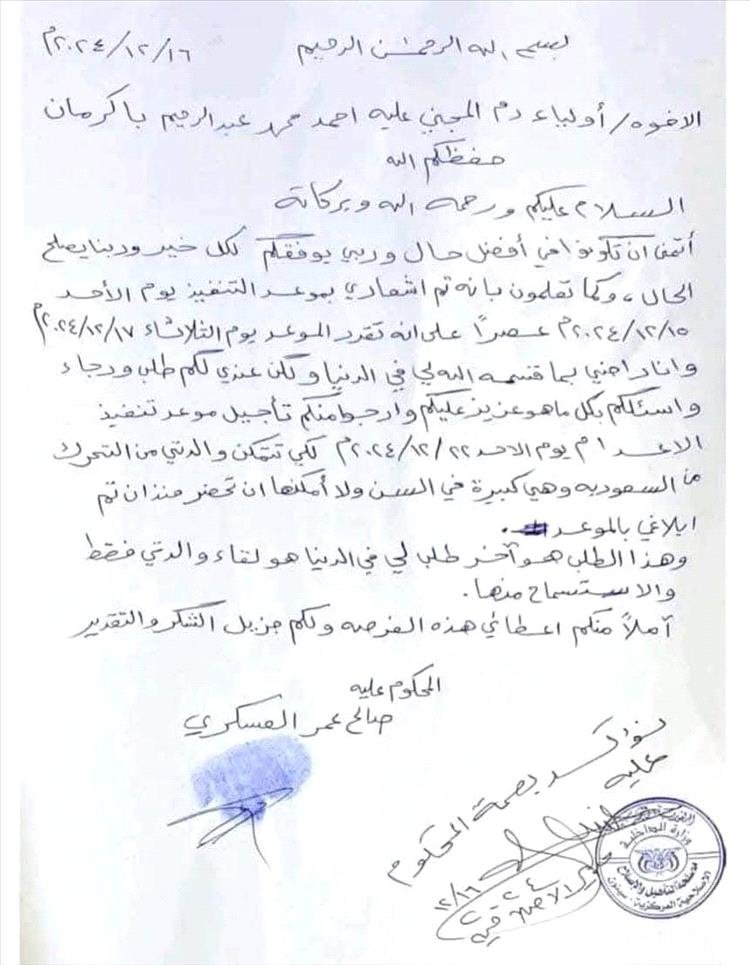 بسم الله الرحمن الرحيم ٢٠٢٤/١٢/١٦م
الاخوه/ أولياء دم المجني عليه احمد محمد عبدالرحيم باكرمان
حفظكم الله
السلام عليكم ورحمه الله وبركاتة
أتمنى ان تكونوا في أفضل حال وربي يوفقكم لكل خير وربنا يصلح
الحال، وكما تعلمون بانه تم اشعاري بموعد التنفيذ يوم الأحد
٢٠٢٤/١٢/١٥م عصراً على انه تقرر الموعد يوم الثلاثاء ٢٠٢٤/١٢/١٧م
وانا راضي بما قسمه الله لي في الدنيا ولكن عندي لكم طلب ورجاء
واسئلكم بكل ماهو عزيز عليكم وارجوا منكم تأجيل موعد تنفيذ
الاعدام يوم الاحد ٢٠٢٤/١٢/٢٢م لكي تتمكن والدتي من التحرك
من السعوديه وهي كبيرة في السن ولا أمكنها ان تحضر منذ ان تم
ابلاغي بالموعد .
وهذا الطلب هو آخر طلب لي في الدنيا هو لقاء والدتي فقط
والاستسماح منها.
آملاً منكم اعطائي هذه الفرصه ولكم جزيل الشكر والتقدير
المحكوم عليه
صالح عمر العسكري
نؤكد بصمة المحكوم
عليه
١٢/١٦
٢٤
وزارة الداخلية
مصلحة التأهيل والإصلاح
الاصلاحية المركزية - سيئون